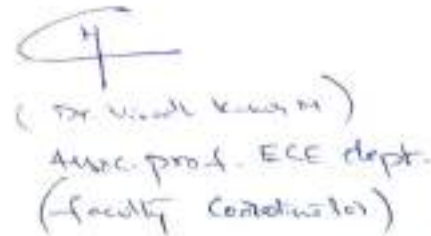 ( Dr Vinoth Kumar M )
Assoc. prof. ECE dept.
(faculty Coordinator)